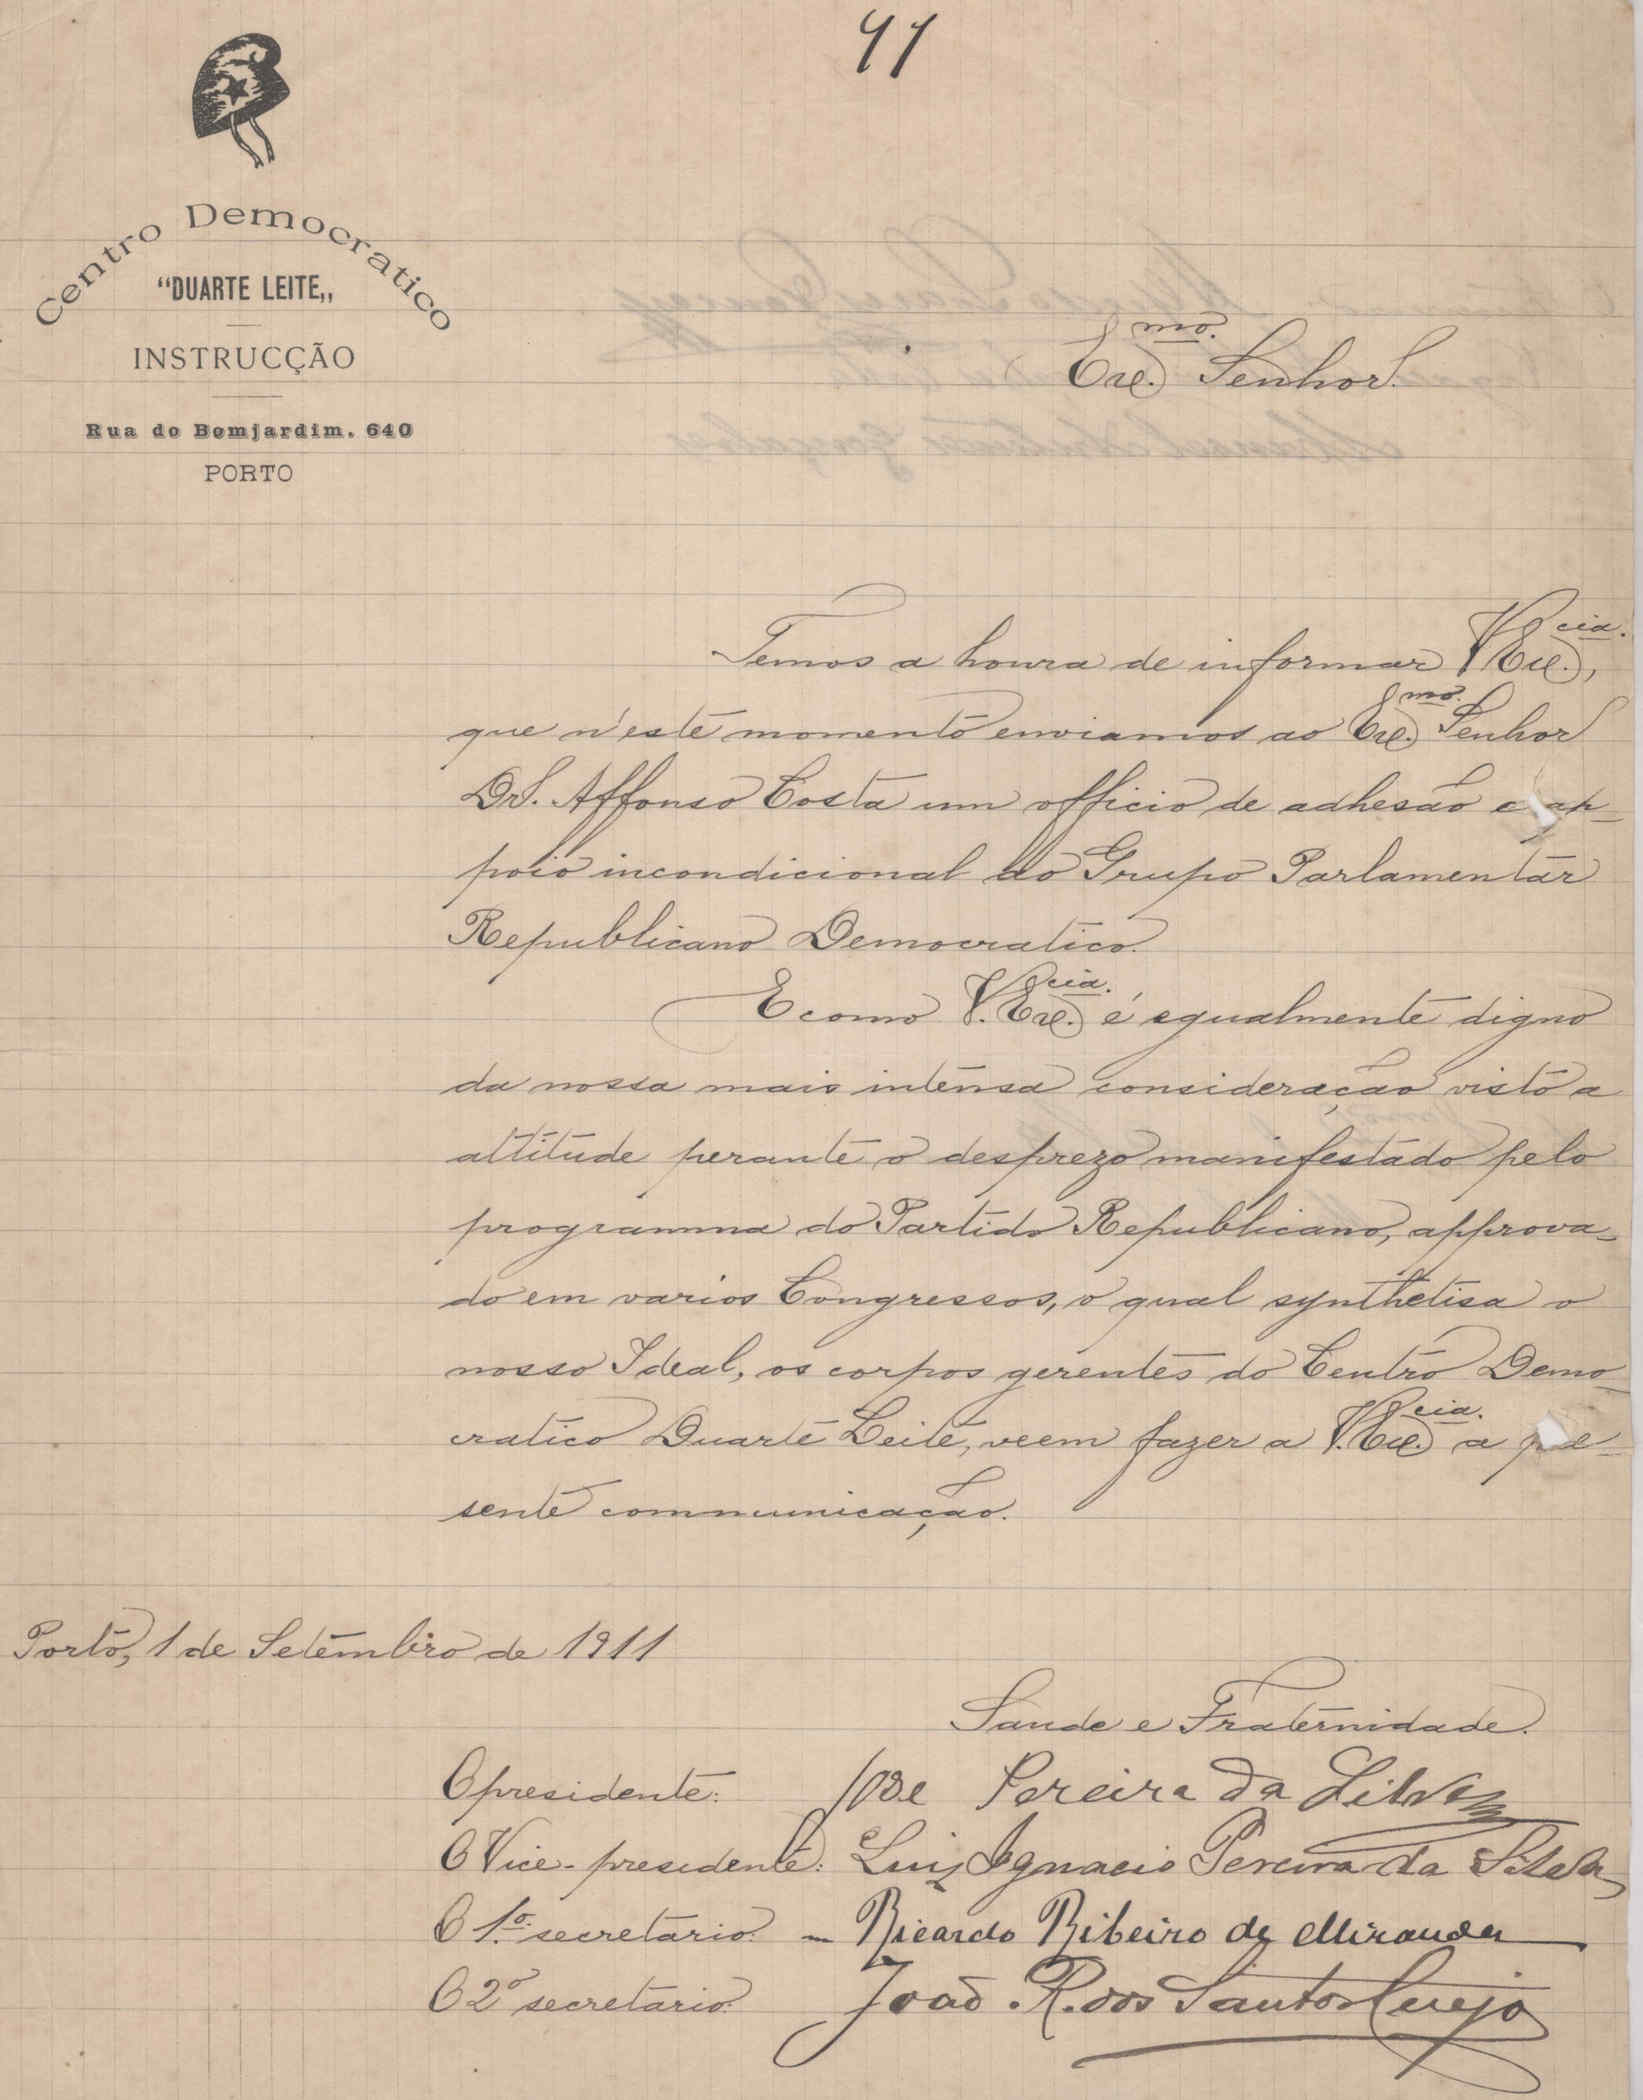 41
Centro Democratico
"DUARTE LEITE,,
INSTRUCÇÃO
Rua do Bomjardim. 640
PORTO
Exc.mo Senhor.
Temos a honra de informar V. Exc.cia,
que n'este momento enviamos ao Exc.mo Senhor
Dr. Affonso Costa um officio de adhesão e ap-
poio incondicional ao Grupo Parlamentar
Republicano Democratico.
E como V. Exc.cia é egualmente digno
da nossa mais intensa consideração visto a
attitude perante o desprezo manifestado pelo
programma do Partido Republicano, approva-
do em varios Congressos, o qual synthetisa o
nosso Ideal, os corpos gerentes do Centro Demo-
cratico Duarte Leite, veem fazer a V. Exc.cia a pre-
sente communicação.
Porto, 1 de Setembro de 1911
Saude e Fraternidade.
O presidente: José Pereira da Silva
O Vice-presidente: Luiz Ignacio Pereira da Silva
O 1.º secretario: - Ricardo Ribeiro de Miranda
O 2º secretario: João R. dos Santos